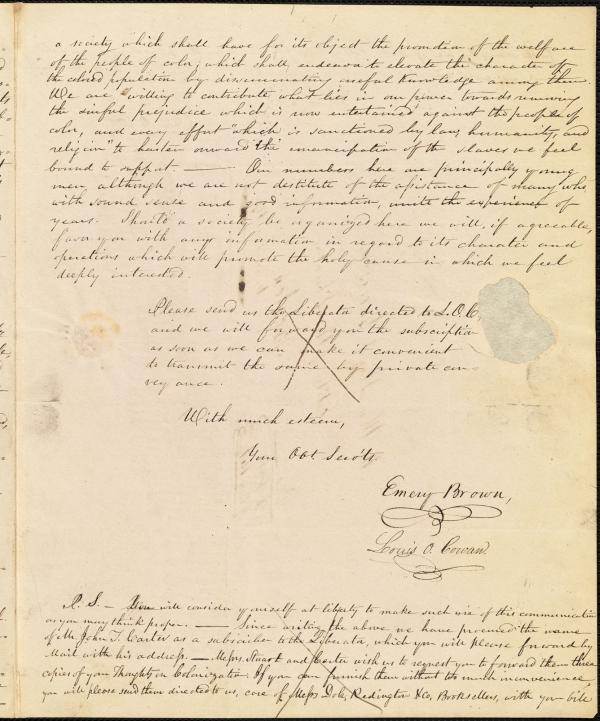 a society which shall have for its object the promotion of the welfare
of the people of color, which shall endeavor to elevate the character of
the colored population by disseminating useful knowledge among them
We are willing to contribute what lies in our power towards removing
the sinful prejudice which is now entertained against the people of
color, and every effort "which is sanctioned by law, humanity, and
religion" to hasten onward the emancipation of the slaves we feel
bound to support. — Our numbers here are principally young
men, although we are not destitute of the assistance of many who,
with sound sense and good information, unite the experience of
years. Should a society be organized here we will, if agreeable,
favor you with any information in regard to its character and
operations which will promote the holy cause in which we feel
deeply interested.
Please send us the Liberator directed to L. O. C,
and we will forward you the subscription
as soon as we can make it convenient
to transmit the same by private con-
veyance.
With much esteem,
Your Obt. Servts.
Emery Brown,
Louis O. Cowan
P. S. — You will consider yourself at liberty to make such use of this communication
as you may think proper. — Since writing the above we have procured the name
of Mr John T. Carter as a subscriber to the Liberator, which you will please forward by
Mail with his address. — Messrs. Stuart and Carter wish us to request you to forward them three
copies of your Thoughts on Colonization. If you can furnish them without too much inconvenience,
you will please send them directed to us, care of Messrs Dole, Redington & Co. Booksellers, with your bill